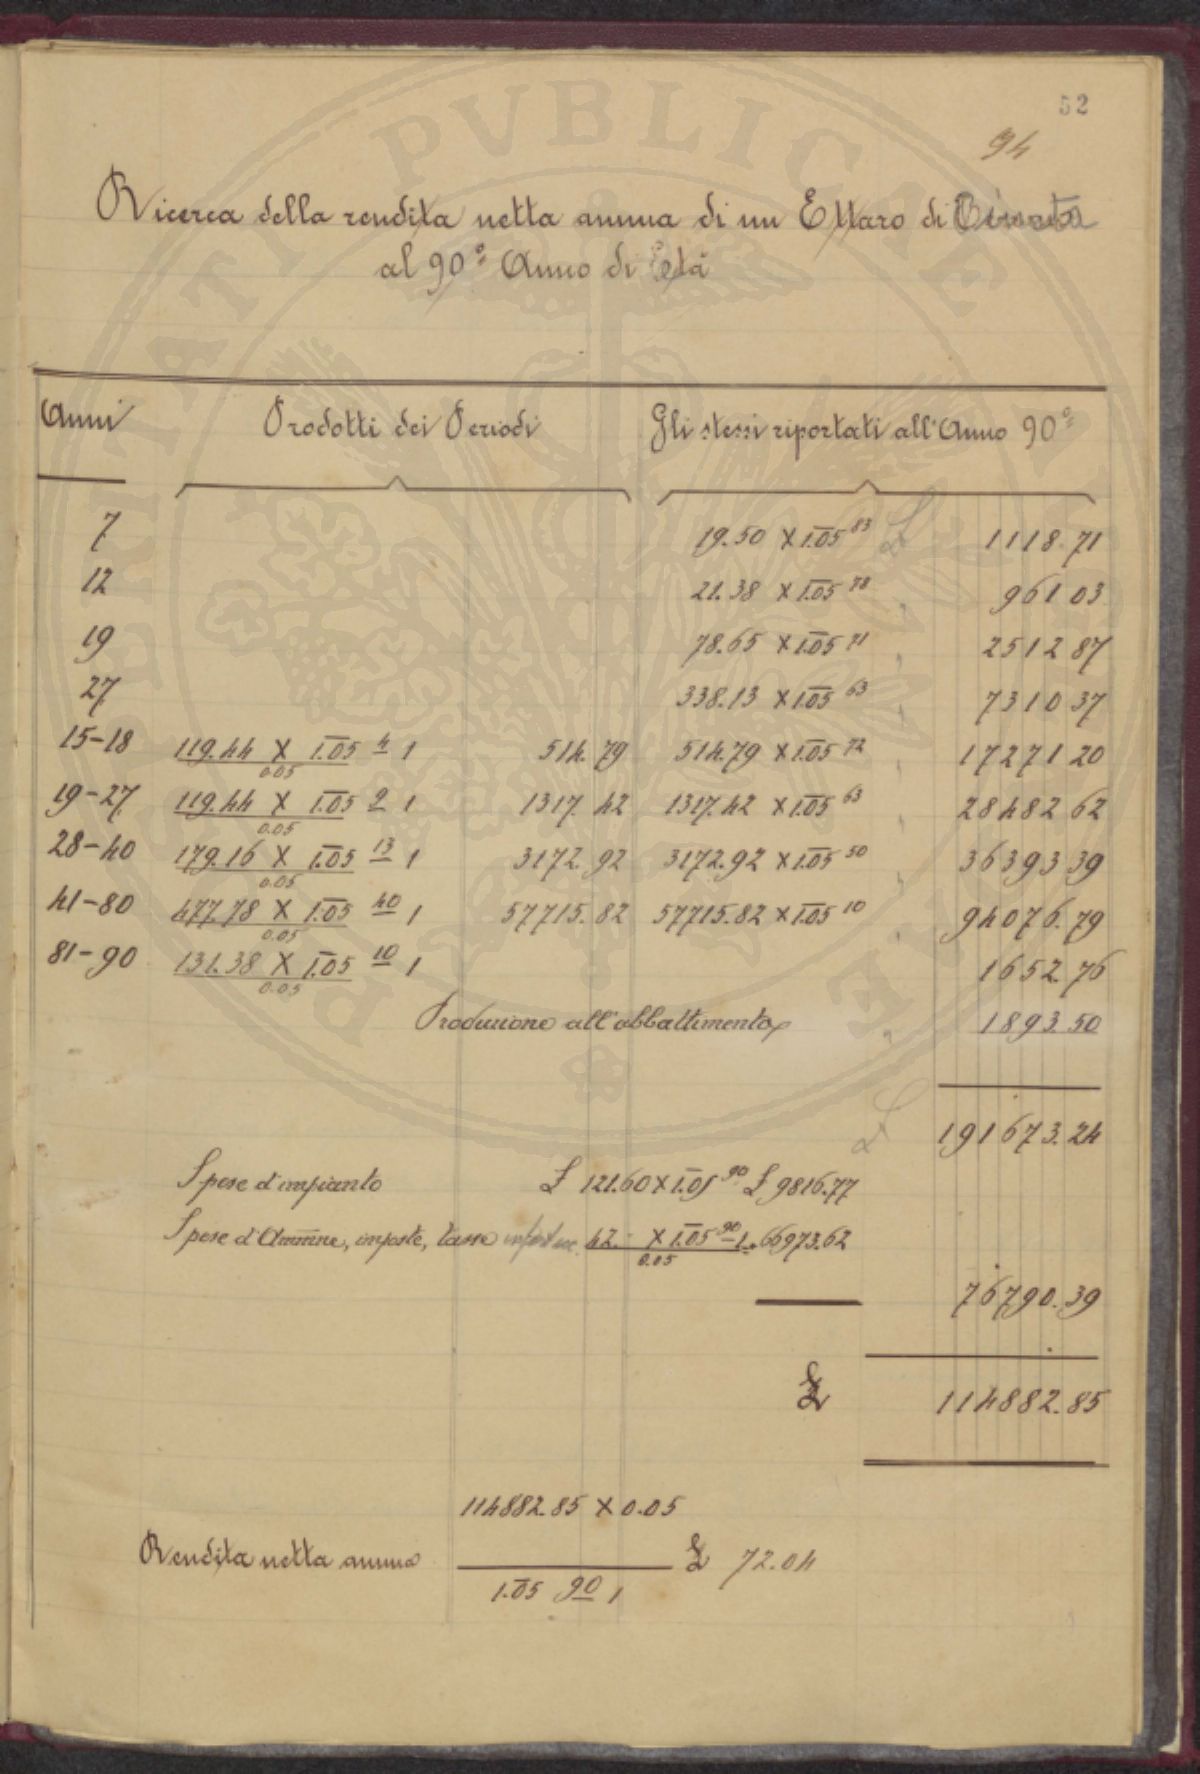 52
94
Ricerca della rendita netta annua di un Ettaro di Pineta
al 90º Anno di Età
Anni Prodotti dei Periodi Gli stessi riportati all'Anno 90º
7 19.50 X 1.05 83 £ 1118.71
12 21.38 X 1.05 78 " 961 03
19 78.65 X 1.05 71 " 2512 87
27 338.13 X 1.05 63 " 7310 37
15-18 119.44 X 1.05 4 - 1 514.79 514.79 X 1.05 72 " 17271 20
0.05
19-27 119.44 X 1.05 9 - 1 1317.42 1317.42 X 1.05 63 " 28482 62
0.05
28-40 179.16 X 1.05 13 - 1 3172.92 3172.92 X 1.05 50 " 36393 39
0.05
41-80 477.78 X 1.05 40 - 1 57715.82 57715.82 X 1.05 10 " 94076.79
0.05
81-90 131.38 X 1.05 10 - 1 1652.76
0.05
Produzione all'abbattimento " 1893.50
£ 191673.24
Spese d'impianto £ 121.60 X 1.05 90 £ 9816.77
Spese d'Ammne, imposte, tasse 42. - X 1.05 90 - 1 " 66973.62
0.05
76790.39
£ 114882.85
114882.85 X 0.05
Rendita netta annua £ 72.04
1.05 90 - 1
PVBLICAE